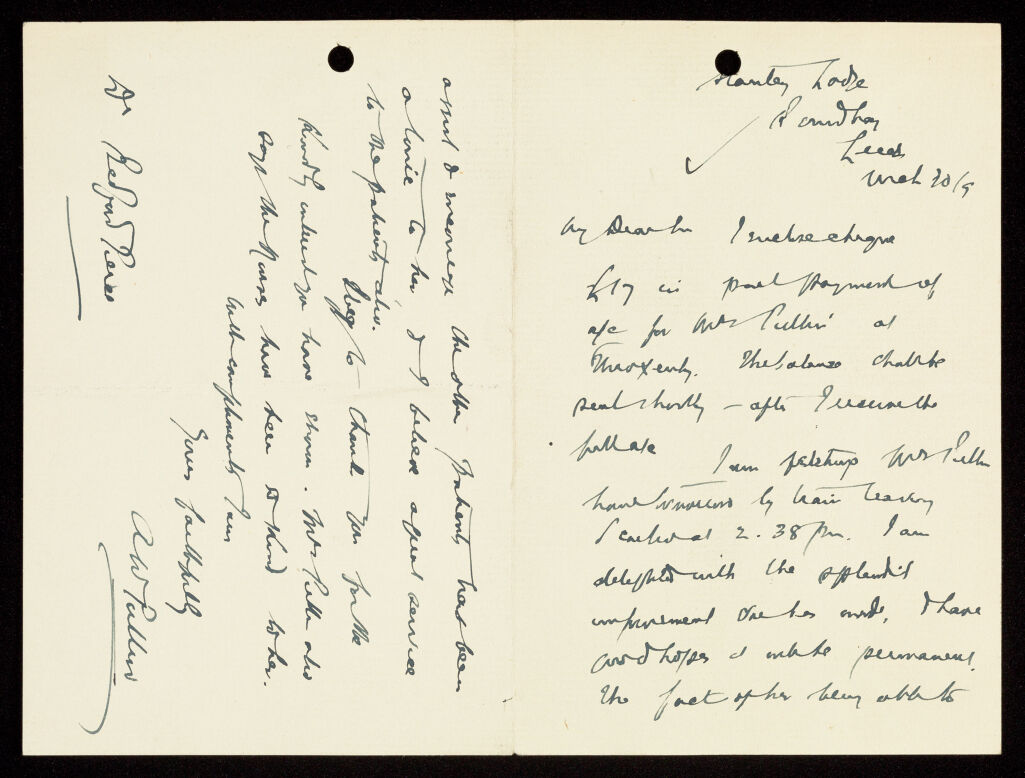 Stanley Lodge
Roundhay
Leeds
Mch 20/9
My Dear Sir I enclose cheque
£17 in part payment of
a/c for Mrs Pullin at
Throxenby. The balance shall be
sent shortly – after I receive the
full a/c
I am fetching Mrs Pullin
home tomorrow by train leaving
Scarbro at 2.38 pm. I am
delighted with the splendid
improvement she has made, & have
good hopes it will be permanent.
The fact of her being able to
assist & encourage the other patients has been
a tonic to her & I believe a great service
to the patients also.
I beg to thank you for the
kindly interest you have shown. Mrs Pullin also
says the Nurses have been so kind to her.
With compliments I am
Yours faithfully
A W Pullin
Dr Bedford Pierce